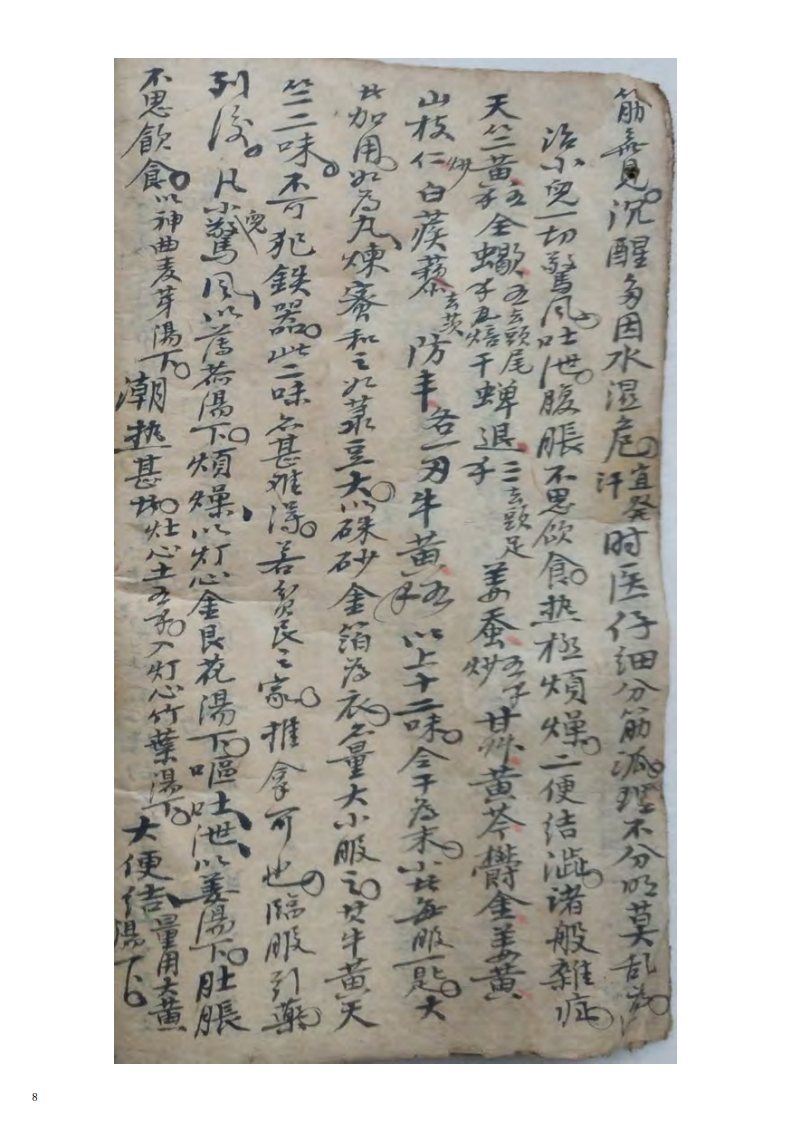 筋無見沉醒多因水濕危宜發汗时医仔細分筋派理不分明莫乱為
治小兒一切驚风吐泄腹脹不思飲食热極煩燥二便结澁诸般雜症
天竺黄五子全蝎五子去頭尾瓦焙干蝉退三子去頭足姜蚕五子炒甘艸黄芩欝金姜黄
山枝仁炒白蒺藜去茨防丰各一刃牛黄以上十二味仝干為末小者每服一匙大
加用如為丸煉蜜和之如菉豆大以硃砂金箔為衣量大小服之其牛黄天
竺二味不可犯鉄器此二味亦甚难得若貧民之家推拿可也臨服引藥
列後凡小兒驚风以薄荷湯下煩燥以灯心金艮花湯下嘔吐泄以姜湯下肚脹
不思飲食以神曲麦芽湯下潮热甚灶心土五子入灯心竹葉湯下大便结量用大黄湯下
8